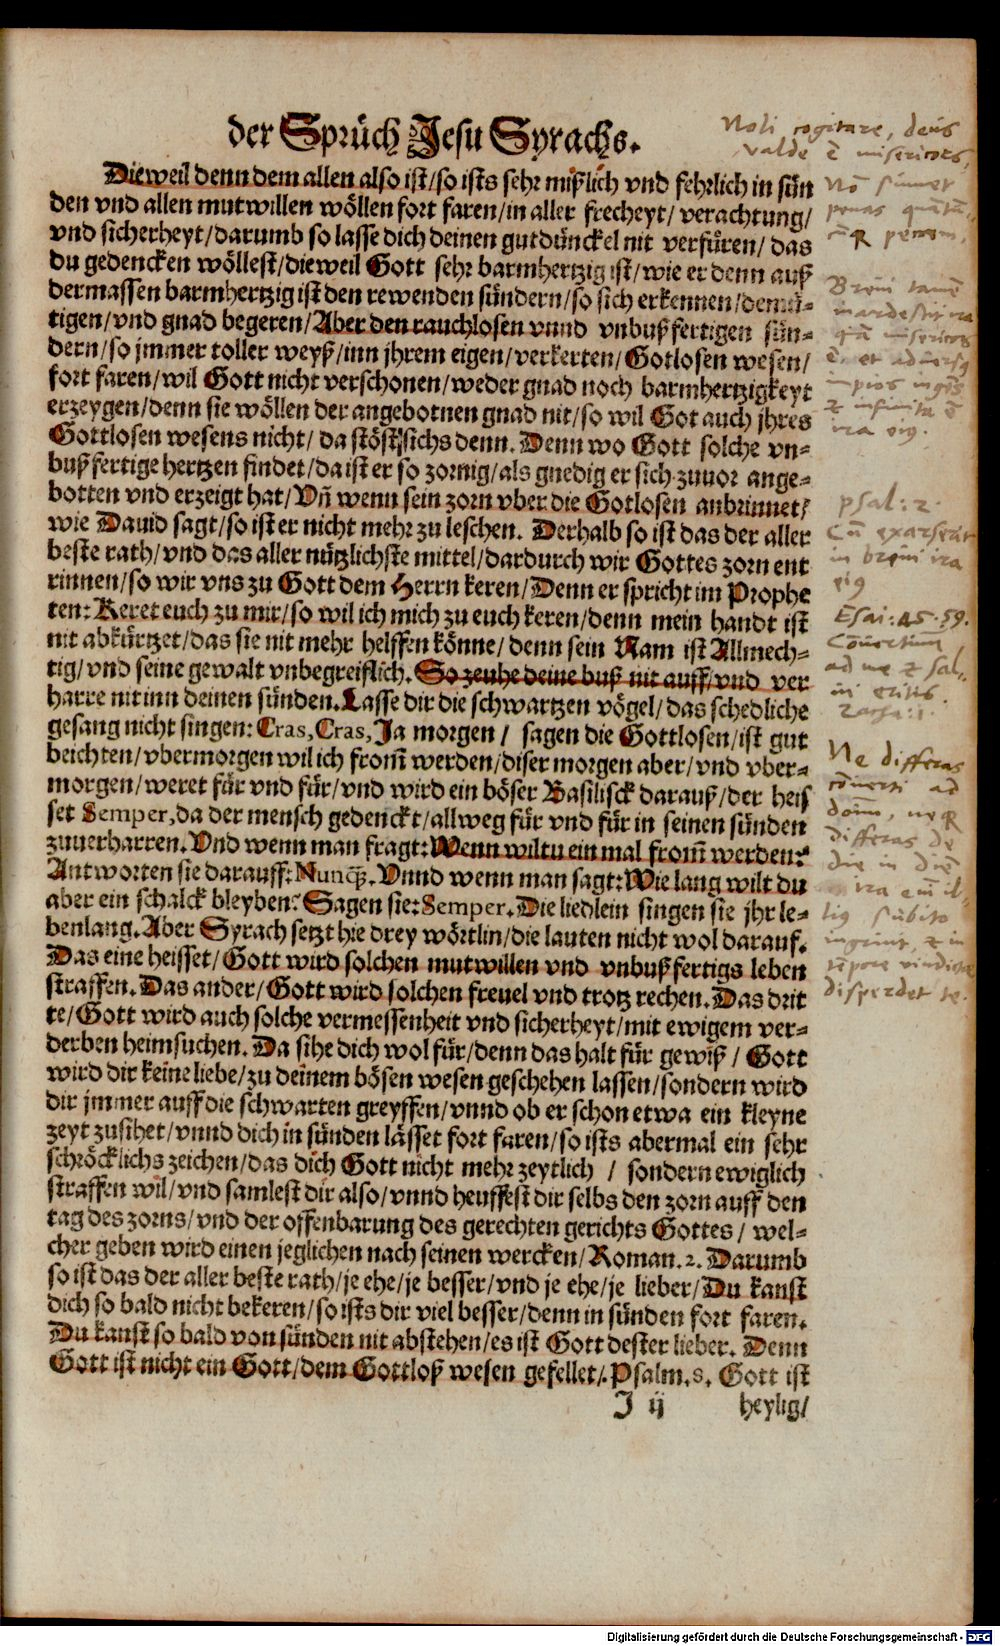 der Sprüch Jesu Syrachs.
Dieweil denn dem allen also ist/so ists sehr mißlich vnd fehrlich in sün
den vnd allen mutwillen wöllen fort faren/in aller frecheyt/ verachtung/
vnd sicherheyt/darumb so lasse dich deinen gutdünckel nit verfüren/ das
du gedencken wöllest/dieweil Gott sehr barmhertzig ist/wie er denn auß
dermassen barmhertzig ist den rewenden sündern/so sich erkennen/demü-
tigen/vnd gnad begeren/Aber den rauchlosen vnnd vnbußfertigen sün-
dern/so jmmer toller weyß/inn jhrem eigen/verkerten/Gotlosen wesen/
fort faren/wil Gott nicht verschonen/weder gnad noch barmhertzigkeyt
erzeygen/denn sie wöllen der angebotnen gnad nit/so wil Got auch jhres
Gottlosen wesens nicht/da stöst sichs denn. Denn wo Gott solche vn-
bußfertige hertzen findet/da ist er so zornig/als gnedig er sich zuuor ange-
botten vnd erzeigt hat/Vñ wenn sein zorn vber die Gotlosen anbrinnet/
wie Dauid sagt/so ist er nicht mehr zu leschen. Derhalb so ist das der aller
beste rath/vnd das aller nützlichste mittel/dardurch wir Gottes zorn ent
rinnen/so wir vns zu Gott dem Herrn keren/Denn er spricht im Prophe
ten: Keret euch zu mir/so wil ich mich zu euch keren/denn mein handt ist
nit abkürtzet/das sie nit mehr helffen könne/denn sein Nam ist Allmech-
tig/vnd seine gewalt vnbegreiflich. So zeuhe deine buß nit auff/vnd ver
harre nit inn deinen sünden. Lasse dir die schwartzen vögel/das schedliche
gesang nicht singen: Cras, Cras, Ja morgen / sagen die Gottlosen/ist gut
beichten/vbermorgen wil ich from̃ werden/diser morgen aber/vnd vber-
morgen/weret für vnd für/vnd wird ein böser Basilisck darauß/der heis
set Semper, da der mensch gedenckt/allweg für vnd für in seinen sünden
zuuerharren. Vnd wenn man fragt: Wenn wiltu ein mal from̃ werden?
Antworten sie darauff: Nuncq̃. Vnnd wenn man sagt: Wie lang wilt du
aber ein schalck bleyben? Sagen sie: Semper. Die liedlein singen sie jhr le-
benlang. Aber Syrach setzt hie drey wörtlin/die lauten nicht wol darauf.
Das eine heisset/Gott wird solchen mutwillen vnd vnbußfertigs leben
straffen. Das ander/Gott wird solchen freuel vnd trotz rechen. Das drit
te/Gott wird auch solche vermessenheit vnd sicherheyt/mit ewigem ver-
derben heimsuchen. Da sihe dich wol für/denn das halt für gewiß / Gott
wird dir keine liebe/zu deinem bösen wesen geschehen lassen/sondern wird
dir jmmer auff die schwarten greyffen/vnnd ob er schon etwa ein kleyne
zeyt zusihet/vnnd dich in sünden lässet fort faren/so ists abermal ein sehr
schröcklichs zeichen/das dich Gott nicht mehr zeytlich / sondern ewiglich
straffen wil/vnd samlest dir also/vnnd heuffest dir selbs den zorn auff den
tag des zorns/vnd der offenbarung des gerechten gerichts Gottes/ wel-
cher geben wird einen jeglichen nach seinen wercken/Roman.2. Darumb
so ist das der aller beste rath/je ehe/je besser/vnd je ehe/je lieber/Du kanst
dich so bald nicht bekeren/so ists dir viel besser/denn in sünden fort faren.
Du kanst so bald von sünden nit abstehen/es ist Gott dester lieber. Denn
Gott ist nicht ein Gott/dem Gottloß wesen gefellet/Psalm.5. Gott ist
J ij heylig/
Noli cogitare, deus
valde ẽ misericors,
Nõ sumet
penas
psal: 2.
Cũ exarserit
in breui ira
eiꝰ
Esai: 45. 59.
ad me & sal-
Zacha: 1.
Ne differas
cõuerti ad
dom̃,
differas de
die in diẽ
ira
subito
& in
tẽpore vindictae
disperdet te.
Digitalisierung gefördert durch die Deutsche Forschungsgemeinschaft - DFG